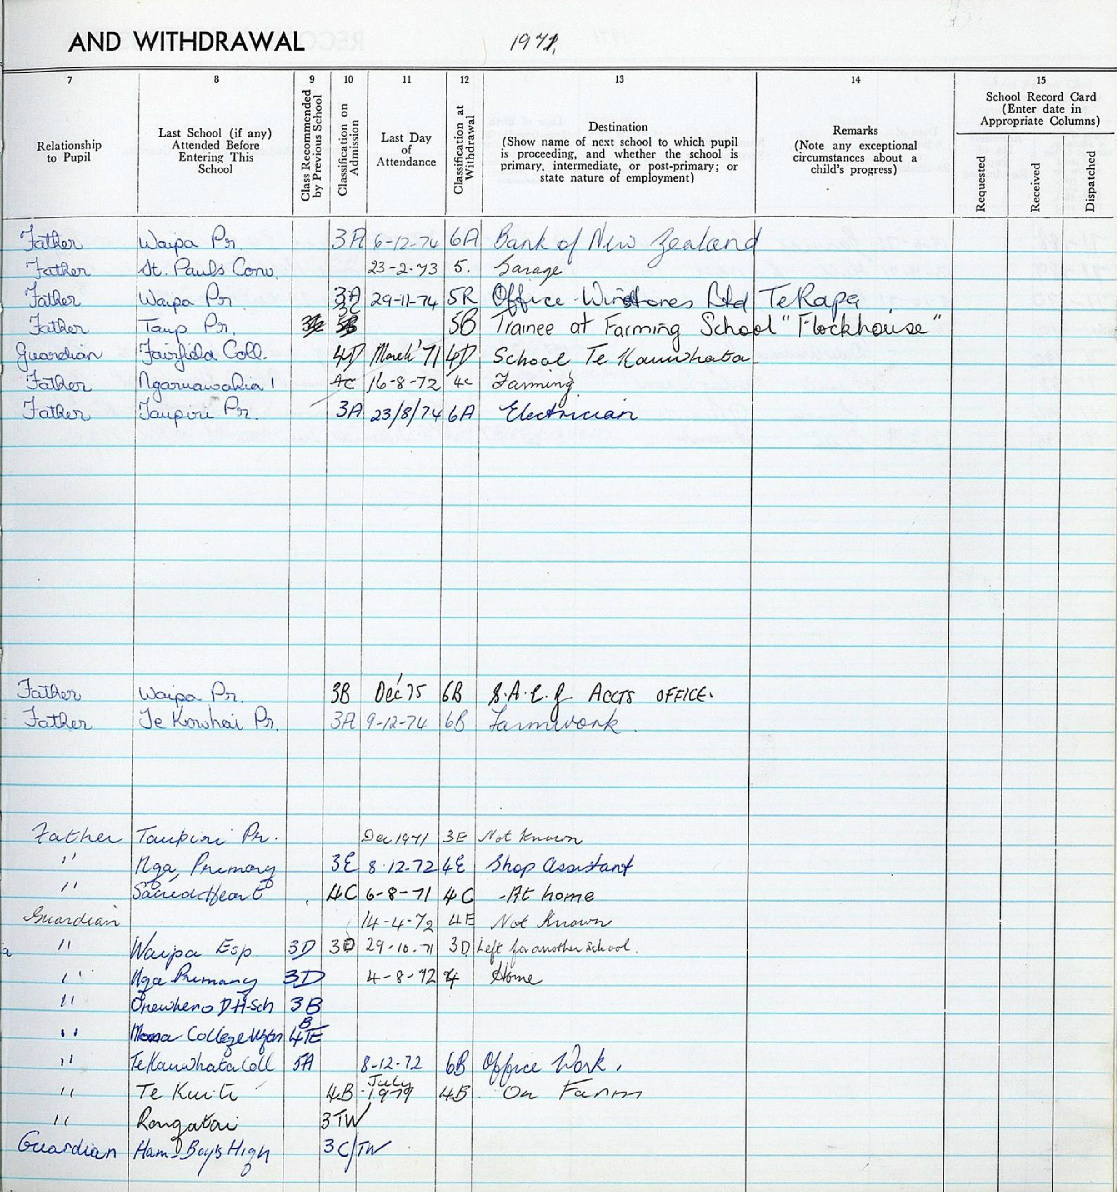 AND WITHDRAWAL 1971.
7 8 9 10 11 12 13 14 15
Relationship to Pupil
Last School (if any) Attended Before Entering This School
Class Recommended by Previous School
Classification on Admission
Last Day of Attendance
Classification at Withdrawal
Destination (Show name of next school to which pupil is proceeding, and whether the school is primary, intermediate, or post-primary; or state nature of employment)
Remarks (Note any exceptional circumstances about a child's progress)
School Record Card (Enter date in Appropriate Columns)
Requested Received Dispatched
Father Waipa Pr. 3A 6-12-74 6A Bank of New Zealand
Father St. Pauls Conv. 23-2-73 5. Garage
Father Waipa Pr 3A 29-11-74 5R Office Winstones Ltd TeRapa
Father Taup Pr. 3C 5B Trainee at Farming School "Flockhouse"
Guardian Fairfield Coll. 4D March '71 4D School Te Kauwhata
Father Ngaruawahia 4C 16-8-72 4c Farming
Father Taupiri Pr. 3A 23/8/74 6A Electrician
Father Waipa Pr. 3B Dec '75 6B ACCTS OFFICE.
Father Te Kowhai Pr. 3A 9-12-74 6B Farmwork.
Father Taupiri Pr. Dec 1971 3E Not Known
" Nga. Primary 3E 8-12-72 4E Shop Assistant
" Sacred Heart 4C 6-8-71 4C At home
Guardian 14-4-72 4E Not Known
" Waipa Esp 3D 3D 29-10-71 3D Left for another school.
" Nga Primary 3D 4-8-72 4 Home
" Onewhero D H Sch 3B
" College 4
" Te Kauwhata Coll 5A 8-12-72 6B Office Work.
" Te Kuiti 4B July 1979 4B On Farm
" Rongotai 3TW
Guardian Ham Boys High 3C/TW